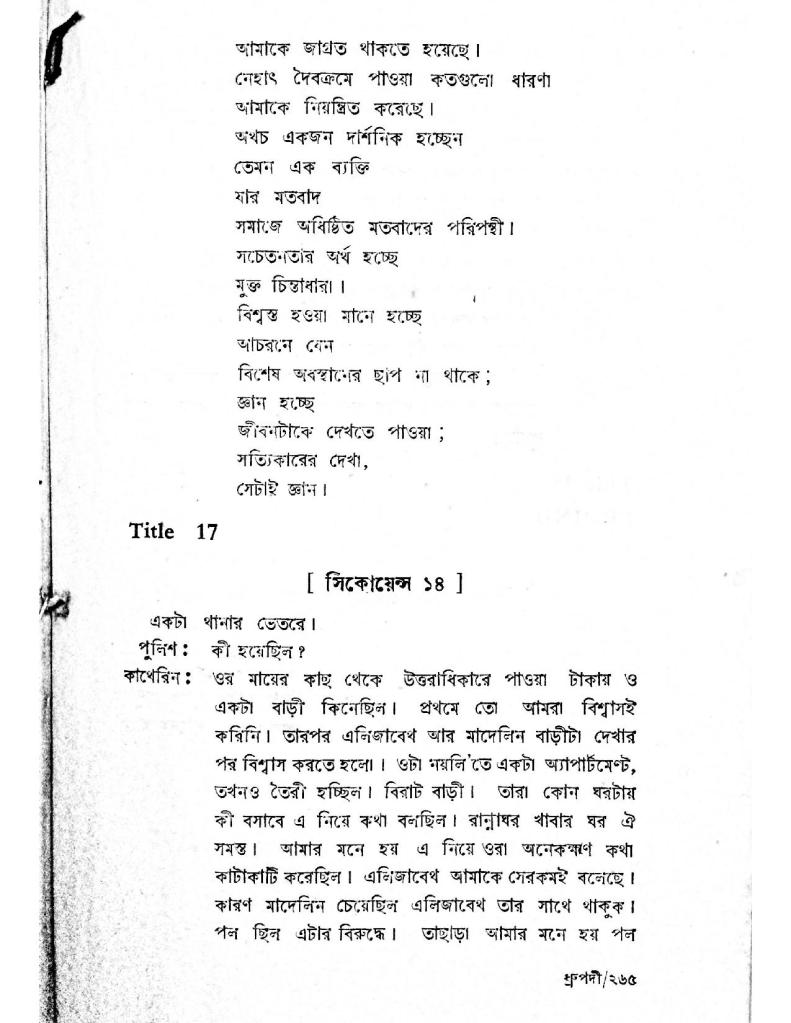 আমাকে জাগ্রত থাকতে হয়েছে।
নেহাৎ দৈবক্রমে পাওয়া কতগুলো ধারণা
আমাকে নিয়ন্ত্রিত করেছে।
অথচ একজন দার্শনিক হচ্ছেন
তেমন এক ব্যক্তি
যার মতবাদ
সমাজে অধিষ্ঠিত মতবাদের পরিপন্থী।
সচেতনতার অর্থ হচ্ছে
মুক্ত চিন্তাধারা।
বিশ্বস্ত হওয়া মানে হচ্ছে
আচরনে যেন
বিশেষ অবস্থানের ছাপ না থাকে;
জ্ঞান হচ্ছে
জীবনটাকে দেখতে পাওয়া;
সত্যিকারের দেখা,
সেটাই জ্ঞান।
Title 17
[ সিকোয়েন্স ১৪ ]
একটা থানার ভেতরে।
পুলিশ: কী হয়েছিল?
কাথেরিন: ওর মায়ের কাছ থেকে উত্তরাধিকারে পাওয়া টাকায় ও
একটা বাড়ী কিনেছিল। প্রথমে তো আমরা বিশ্বাসই
করিনি। তারপর এলিজাবেথ আর মাদেলিন বাড়ীটা দেখার
পর বিশ্বাস করতে হলো। ওটা নয়লি'তে একটা অ্যাপার্টমেণ্ট,
তখনও তৈরী হচ্ছিল। বিরাট বাড়ী। তারা কোন ঘরটায়
কী বসাবে এ নিয়ে কথা বলছিল। রান্নাঘর খাবার ঘর ঐ
সমস্ত। আমার মনে হয় এ নিয়ে ওরা অনেকক্ষণ কথা
কাটাকাটি করেছিল। এলিজাবেথ আমাকে সেরকমই বলেছে।
কারণ মাদেলিন চেয়েছিল এলিজাবেথ তার সাথে থাকুক।
পল ছিল এটার বিরুদ্ধে। তাছাড়া আমার মনে হয় পল
ধ্রুপদী/২৬৫